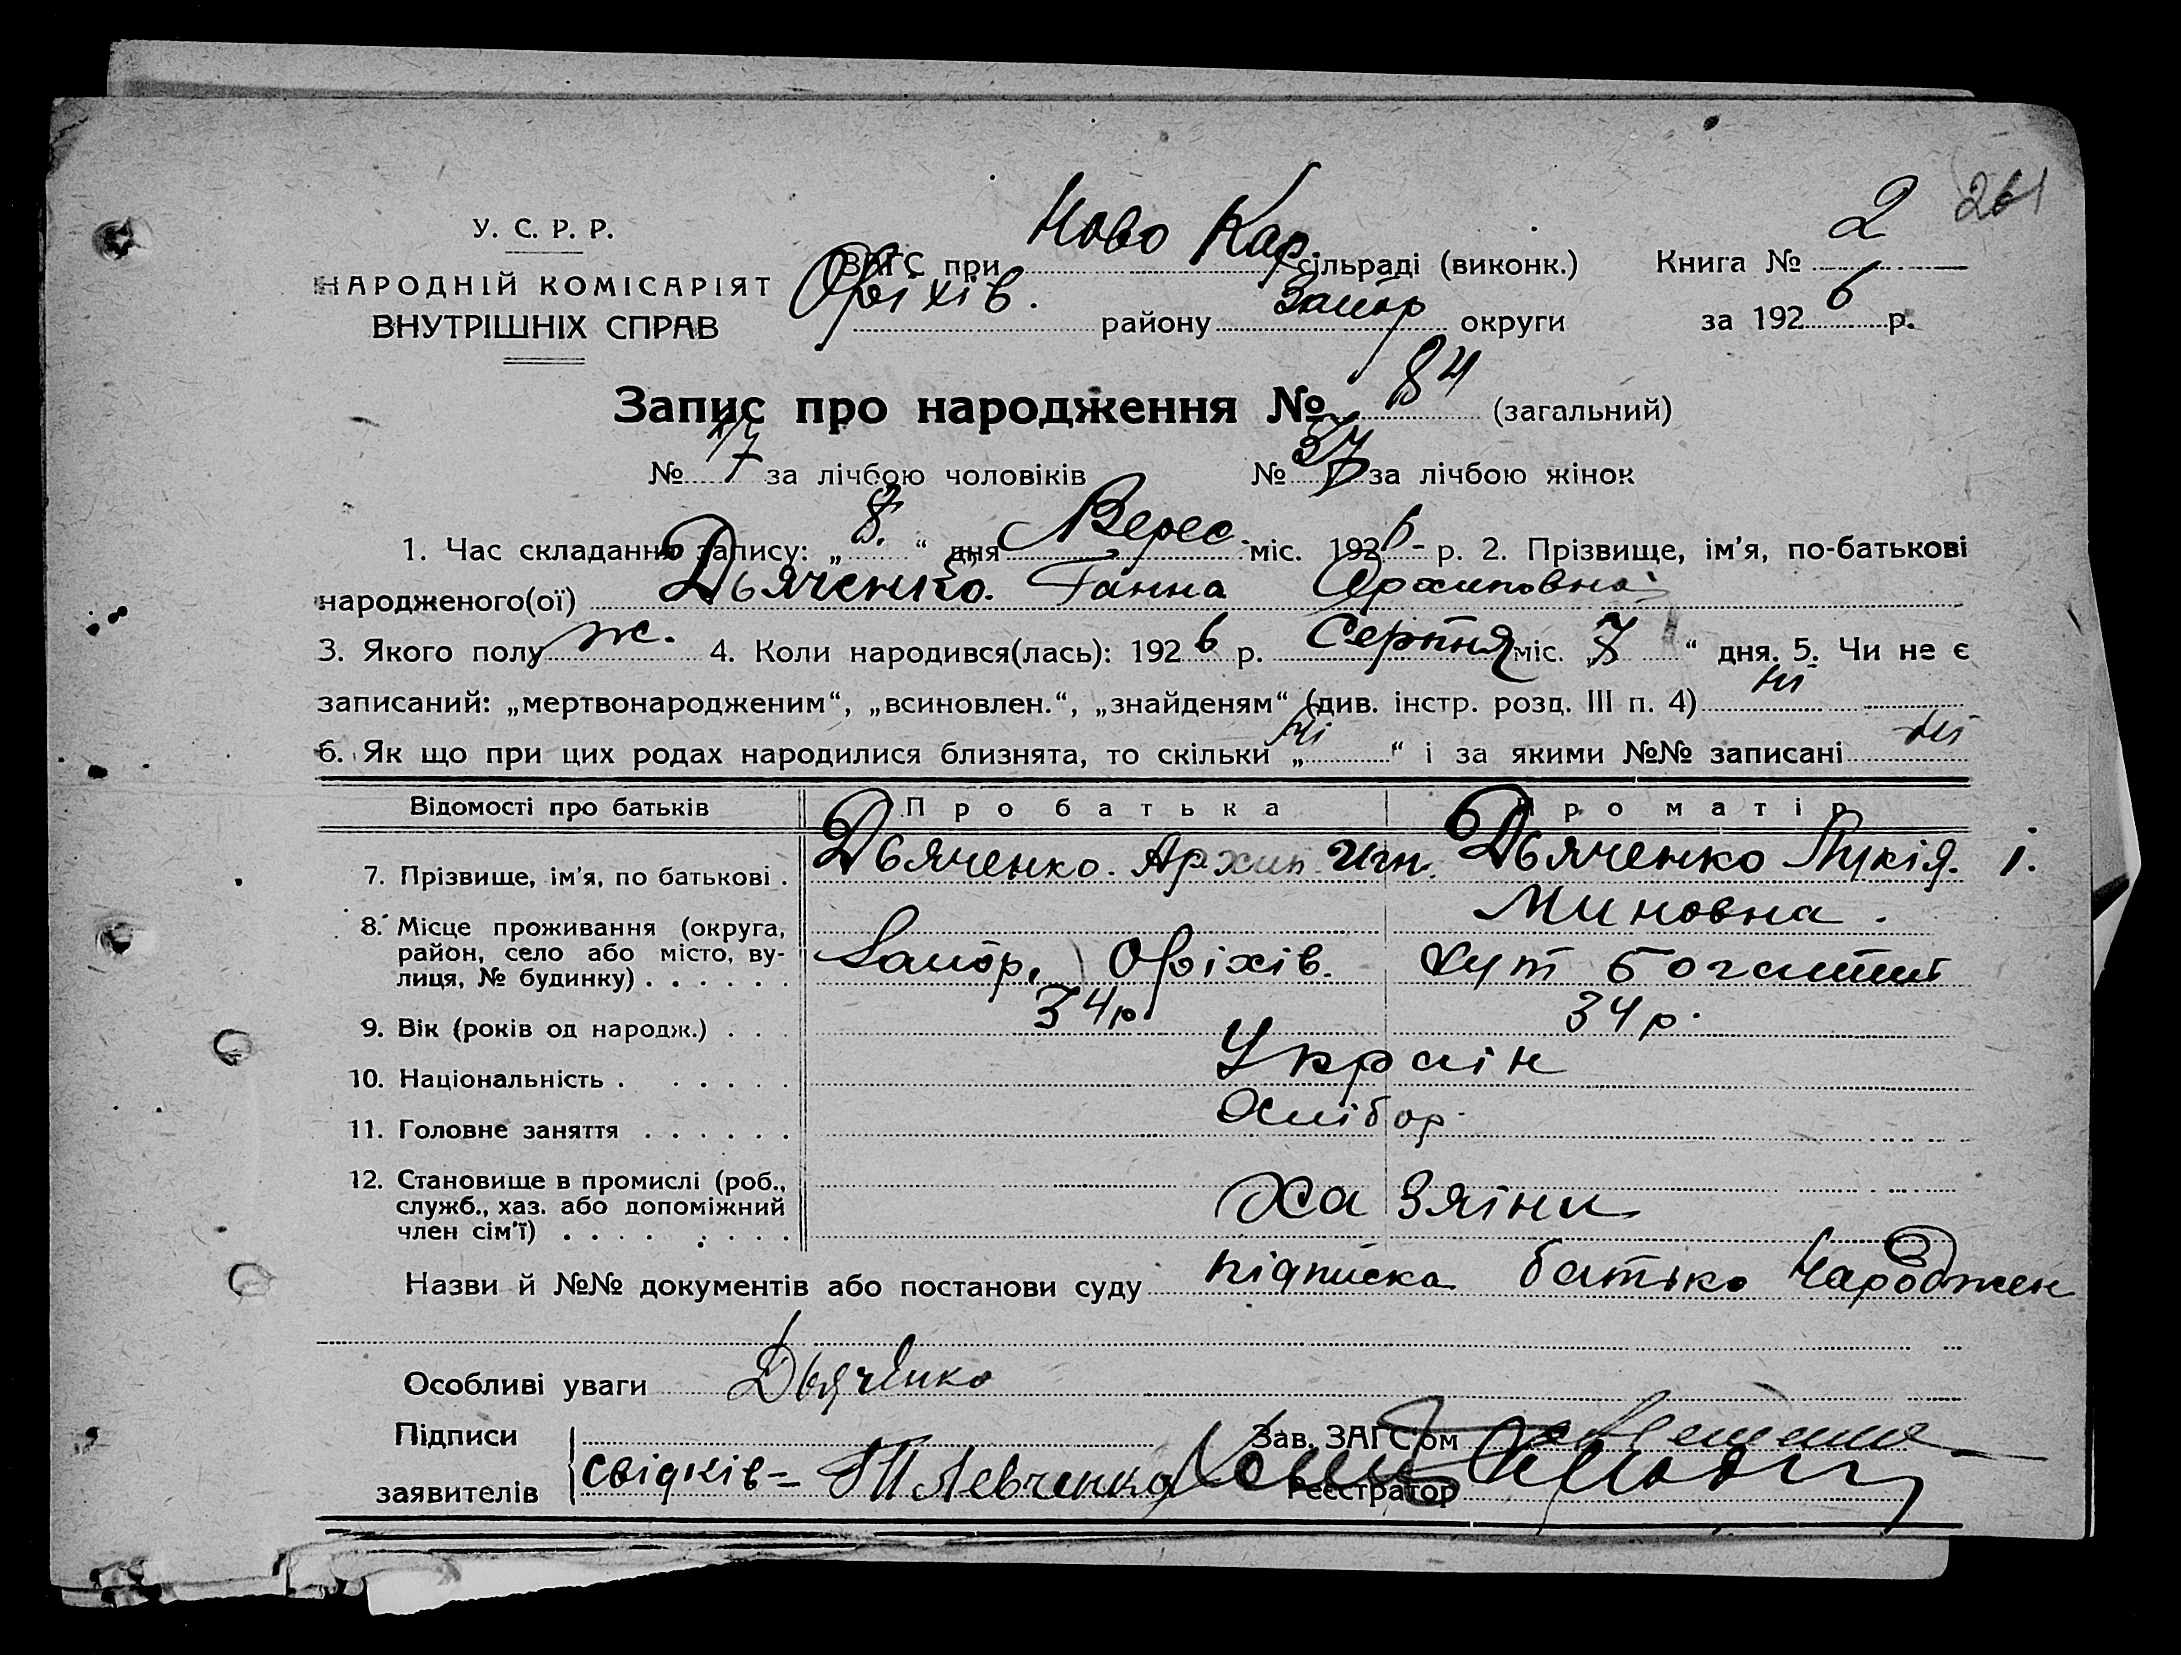 261
У. С. Р. Р.
НАРОДНІЙ КОМІСАРІЯТ
ВНУТРІШНІХ СПРАВ
ЗАГС при Ново Кар. сільраді (виконк.)
Книга № 2
Оріхів. району Запор округи
за 1926 р.
Запис про народження № 84 (загальний)
№ за лічбою чоловіків № за лічбою жінок
1. Час складання запису: „8.“ дня Верес. міс. 1926 р. 2. Прізвище, ім'я, по-батькові
народженого(ої) Дьяченко. Ганна Архиповна
3. Якого полу ж. 4. Коли народився(лась): 1926 р. Серпня міс. „ “ дня. 5. Чи не є
записаний: „мертвонародженим“, „всиновлен.“, „знайденям“ (див. інстр. розд. III п. 4) ні
6. Як що при цих родах народилися близнята, то скільки „ні“ і за якими №№ записані ні
Відомості про батьків Про батька Про матір
7. Прізвище, ім'я, по батькові . Дьяченко. Архип Дьяченко Лукія. і.
Миновна.
8. Місце проживання (округа,
район, село або місто, ву-
лиця, № будинку) . . . . . . Запор. Оріхів. хут
9. Вік (років од народж.) . . . 34 р. 34 р.
10. Національність . . . . . . Украін
11. Головне заняття . . . . . . Хлібор.
12. Становище в промислі (роб.,
служб., хаз. або допоміжний
член сім'ї) . . . . . . . . Хазяіни
Назви й №№ документів або постанови суду підписка батько Народжен
Особливі уваги Дьяченко
Підписи
заявителів
Свідків = Левченко
Зав. ЗАГС'ом
Реєстратор